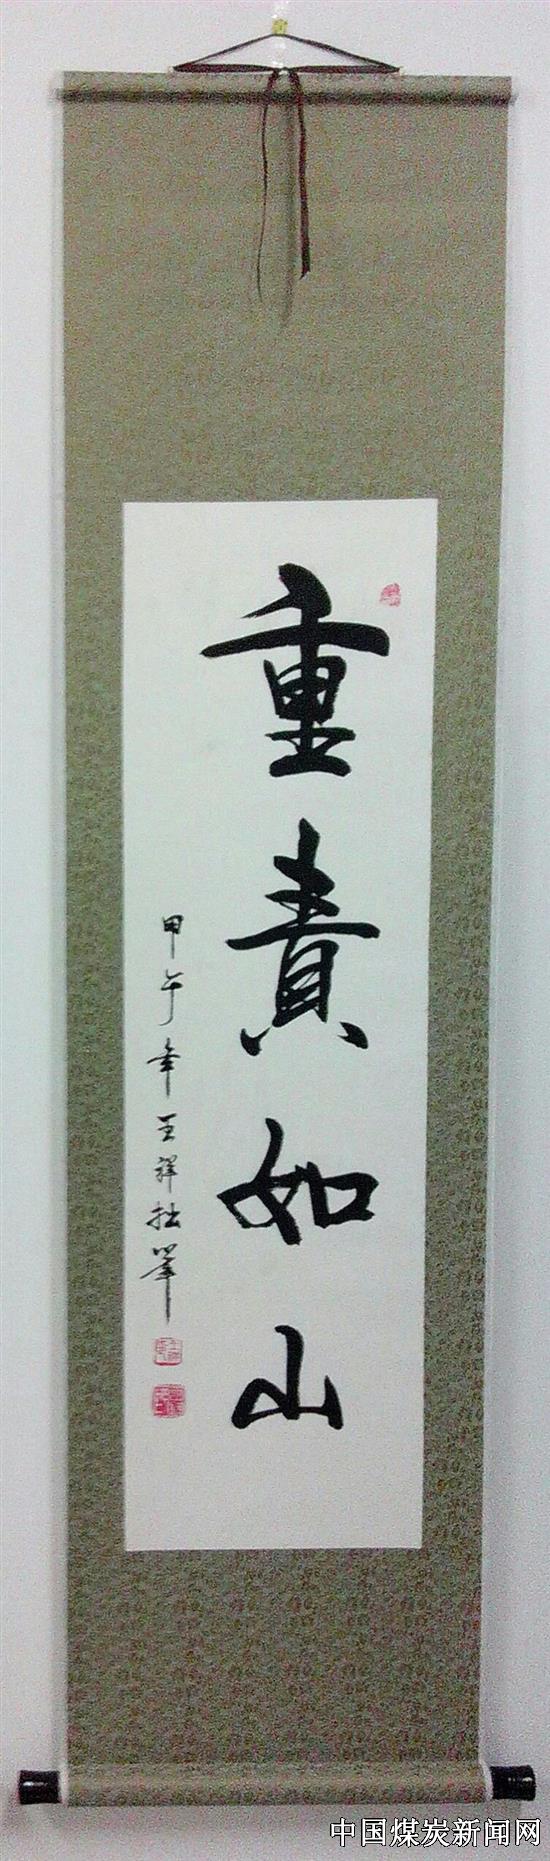 重責如山
甲午年王祥拙筆
中国煤炭新闻网